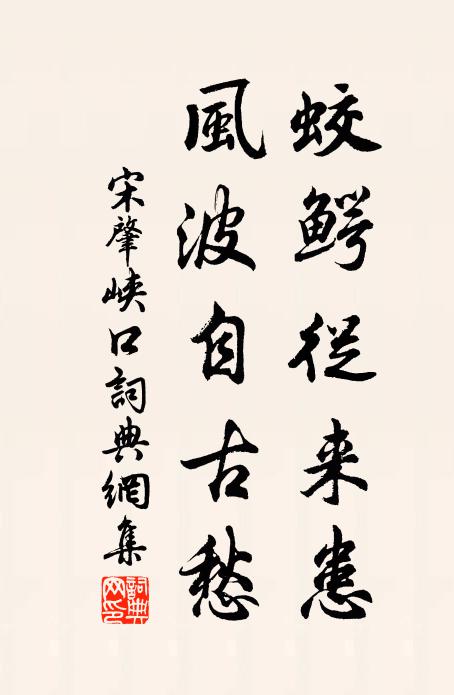 蛟鳄從来患
風波自古愁
宋肇峽口詞典網集
詞典网印